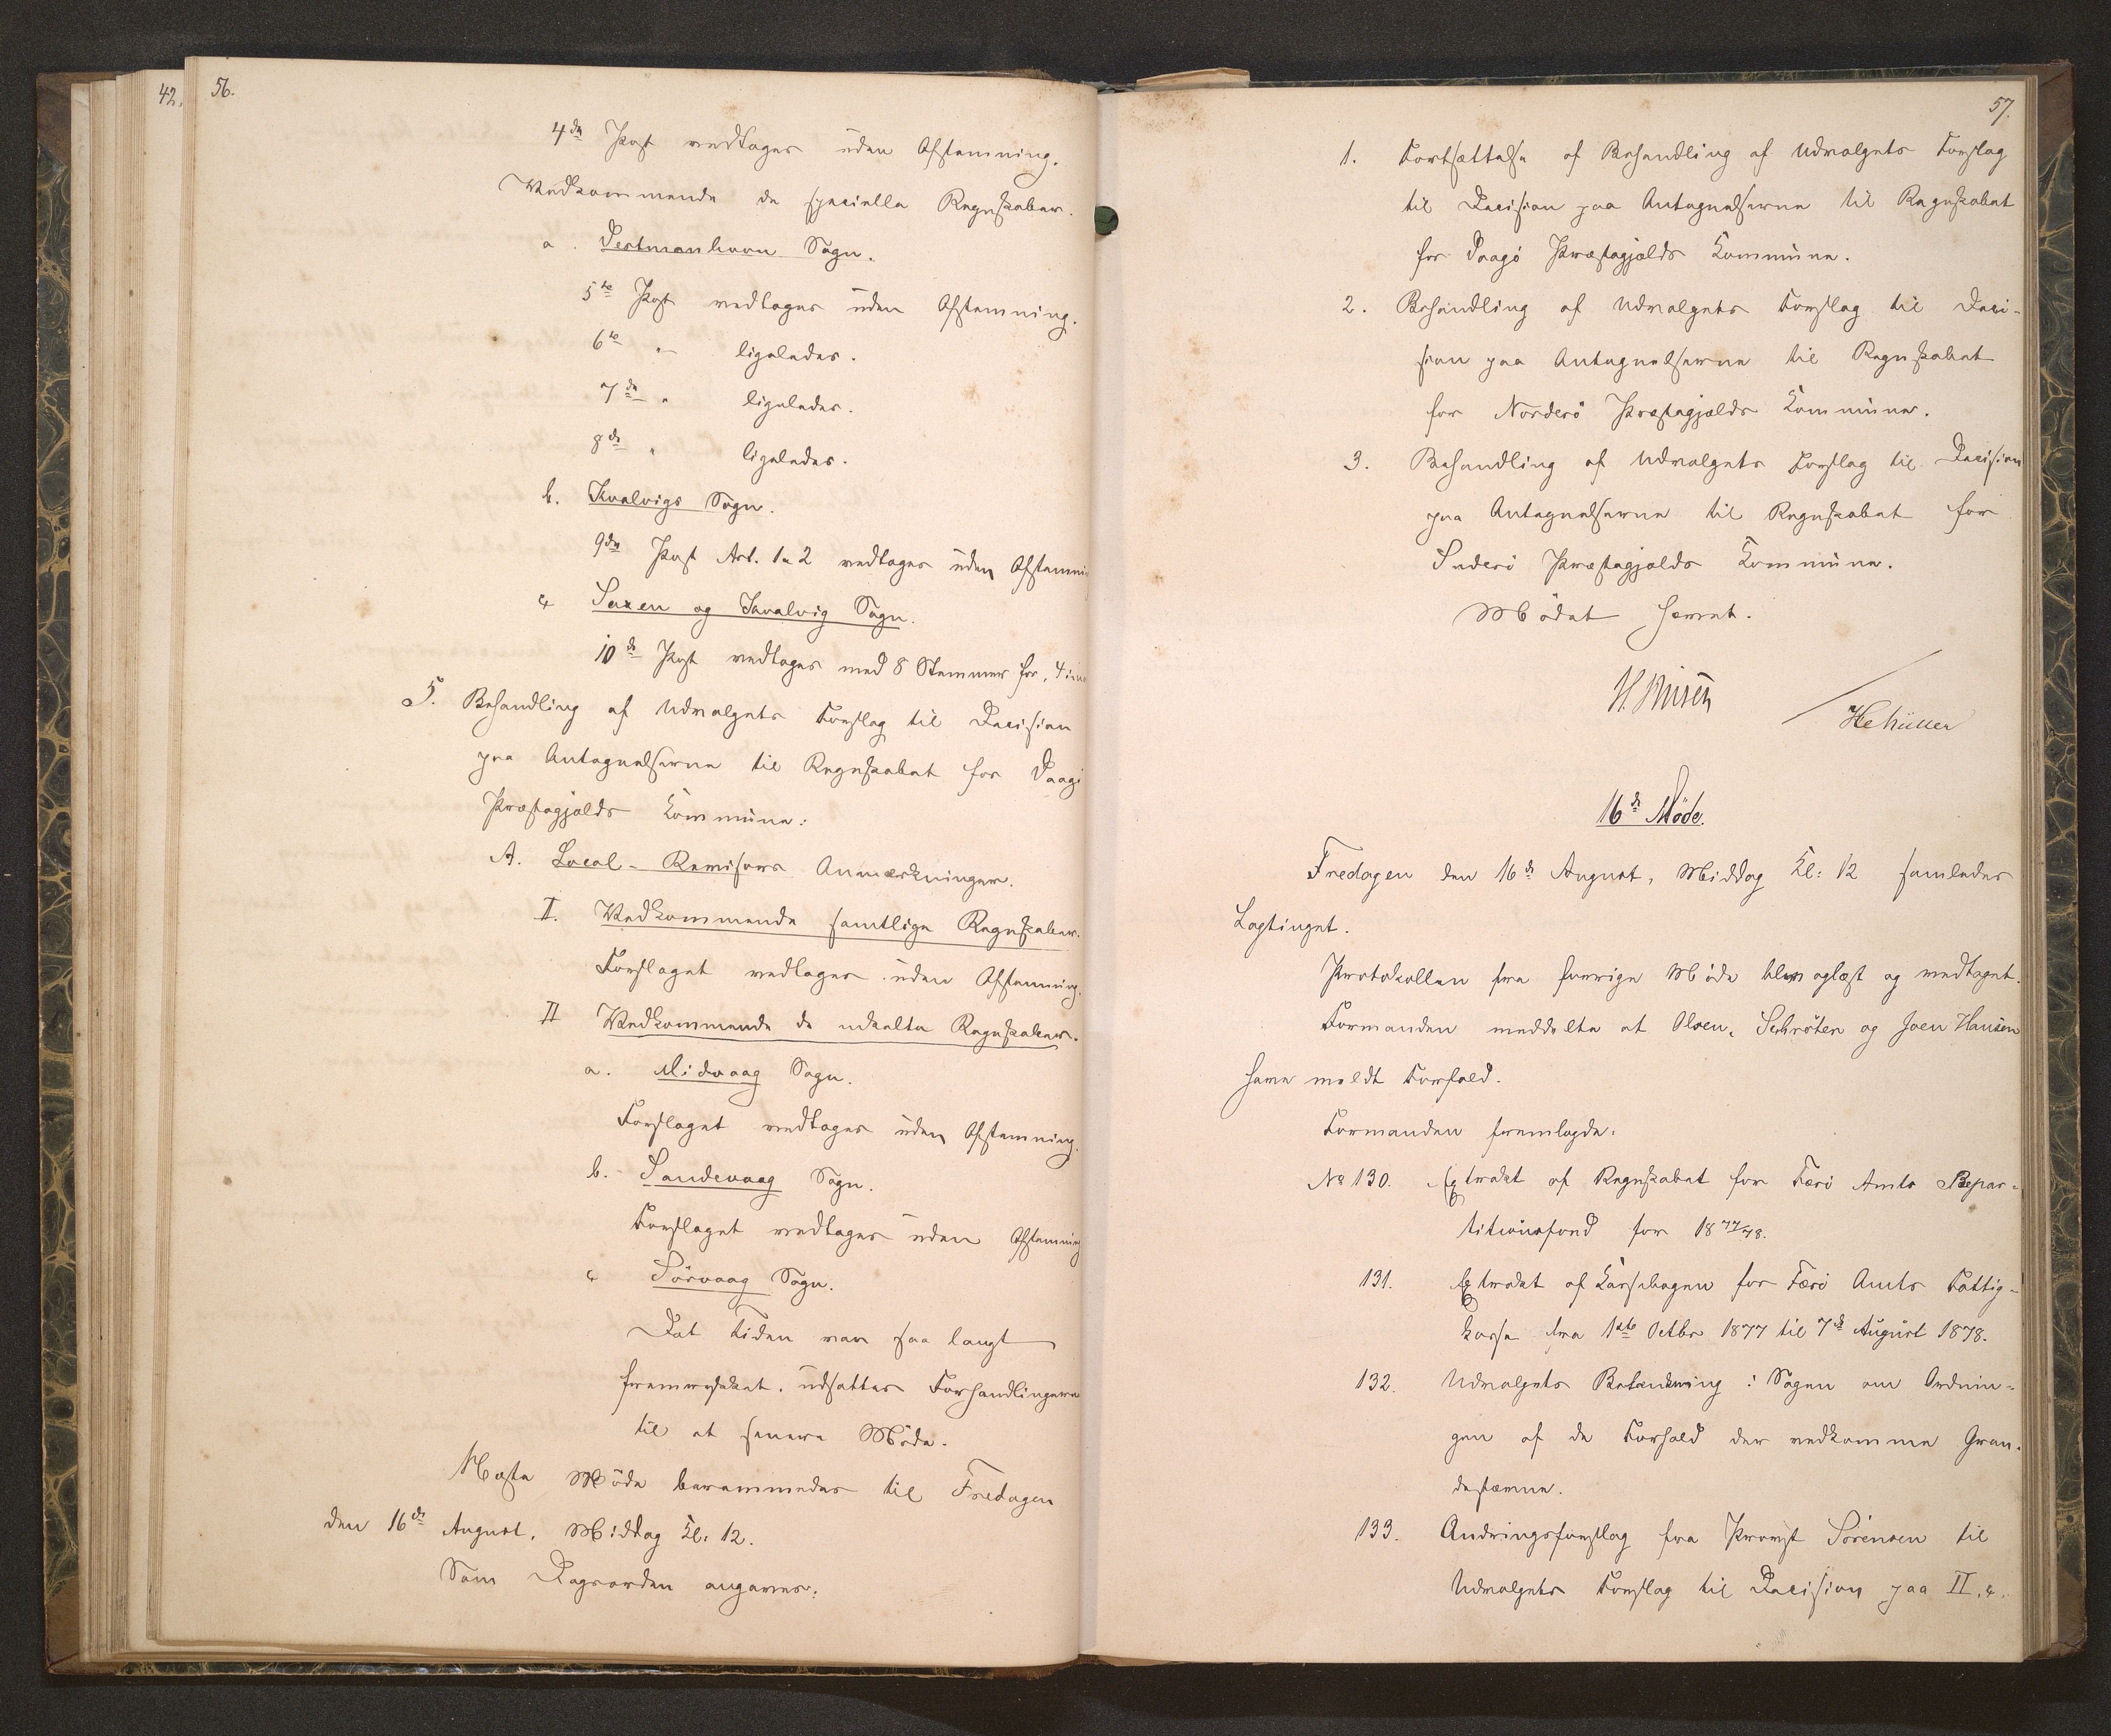 42.
56.
4de Post vedtages uden Afstemning.
Vedkommende de specielle Regnskaber.
a. Vestmanhavn Sogn.
5te Post vedtages uden Afstemning.
6te " ligeledes.
7de " ligeledes.
8de " ligeledes.
b. Kvalvigs Sogn.
9de Post Art. 1 & 2 vedtages uden Afstemni
c Saxen og Kvalvig Sogn.
10de Post vedtages med 8 Stemmer for, 4 im
5. Behandling af Udvalgets Forslag til Decision
paa Antegnelserne til Regnskabet for Vaagö
Præstegjelds Kommune:
A. Local-Revisors Anmærkninger.
I. Vedkommende samtlige Regnskaber.
Forslaget vedtages uden Afstemning.
II Vedkommende de enkelte Regnskaber.
a. Midvaag Sogn.
Forslaget vedtages uden Afstemning.
b. Sandevaag Sogn.
Forslaget vedtages uden Afstemning
c Sörvaag Sogn.
Det Tiden var saa langt
fremrykket, udsattes Forhandlingerne
til et senere Möde.
Næste Möde berammedes til Fredagen
den 16de August, Middag Kl: 12.
Som Dagsorden angaves:
57.
1. Fortsættelse af Behandling af Udvalgets Forslag
til Decision paa Antegnelserne til Regnskabet
for Vaagö Præstegjelds Kommune.
2. Behandling af Udvalgets Forslag til Deci-
sion paa Antegnelserne til Regnskabet
for Norderö Præstegjelds Kommune.
3. Behandling af Udvalgets Forslag til Decision
paa Antegnelserne til Regnskabet for
Suderö Præstegjelds Kommune.
Mödet hævet.
16de Möde.
Fredagen den 16de August, Middag Kl: 12 samledes
Lagtinget.
Protokollen fra forrige Möde blev oplæst og vedtaget.
Formanden meddelte at Olsen, Schröter og Joen Hansen
have meldt Forfald.
Formanden fremlagde:
No 130. Extrakt af Regnskabet for Færö Amts Repar=
titionsfond for 1877/78.
131. Extrakt af Kassebogen for Færö Amts Fattig=
kasse fra 1ste Octbr 1877 til 7de August 1878.
132. Udvalgets Betænkning i Sagen om Ordnin=
gen af de Forhold der vedkomme Gran=
destævne.
133. Ændringsforslag fra Provst Sörensen til
Udvalgets Forslag til Decision paa II.c.